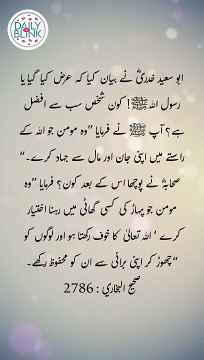 DAILY
BLINK
ابو سعید خدریؓ نے بیان کیا کہ عرض کیا گیا یا
رسول اللہ ﷺ! کون شخص سب سے افضل
ہے؟ آپ ﷺ نے فرمایا ”وہ مومن جو اللہ کے
راستے میں اپنی جان اور مال سے جہاد کرے۔“
صحابہؓ نے پوچھا اس کے بعد کون؟ فرمایا ”وہ
مومن جو پہاڑ کی کسی گھاٹی میں رہنا اختیار
کرے ‘ اللہ تعالیٰ کا خوف رکھتا ہو اور لوگوں کو
چھوڑ کر اپنی برائی سے ان کو محفوظ رکھے۔“
صحیح البخاري : 2786